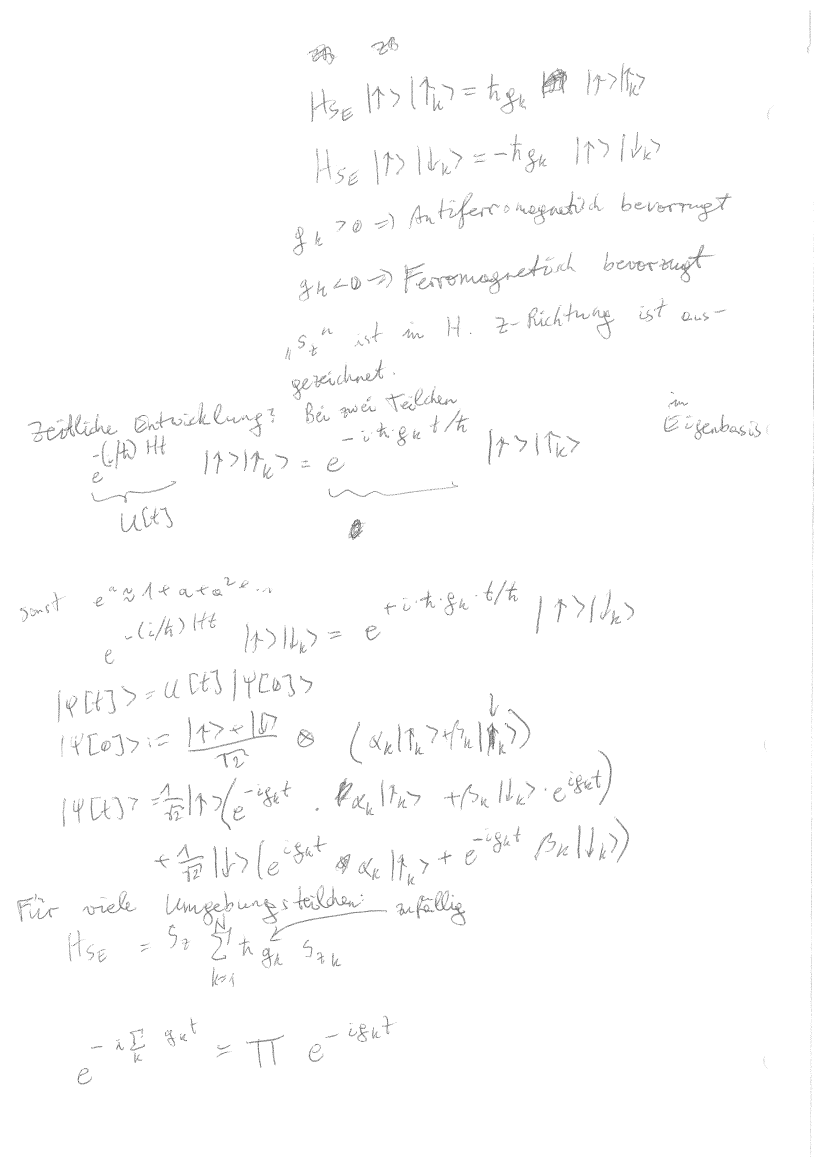 zB
H_SE |↑>|↑_k> = ħ g_k |↑>|↑_k>
H_SE |↑>|↓_k> = -ħ g_k |↑>|↓_k>
g_k > 0 => Antiferromagnetisch bevorzugt
g_k < 0 => Ferromagnetisch bevorzugt
„S_z" ist in H. z-Richtung ist aus-
gezeichnet.
Zeitliche Entwicklung? Bei zwei Teilchen
in
Eigenbasis
e^{-(i/ħ) Ht} |↑>|↑_k> = e^{-i·ħ·g_k t/ħ} |↑>|↑_k>
U[t]
sonst e^a ≈ 1 + a + a² + ...
e^{-(i/ħ) Ht} |↑>|↓_k> = e^{+i·ħ·g_k·t/ħ} |↑>|↓_k>
|Ψ[t]> = U[t] |Ψ[0]>
|Ψ[0]> := (|↑> + |↓>)/√2 ⊗ (α_k|↑_k> + β_k|↓_k>)
|Ψ[t]> = 1/√2 |↑> (e^{-ig_k t} · α_k|↑_k> + β_k|↓_k> · e^{ig_k t})
+ 1/√2 |↓> (e^{ig_k t} α_k|↑_k> + e^{-ig_k t} β_k|↓_k>)
Für viele Umgebungsteilchen: zufällig
H_SE = S_z Σ_{k=1}^{N} ħ g_k S_{z k}
e^{-i Σ_k g_k t} = Π e^{-ig_k t}